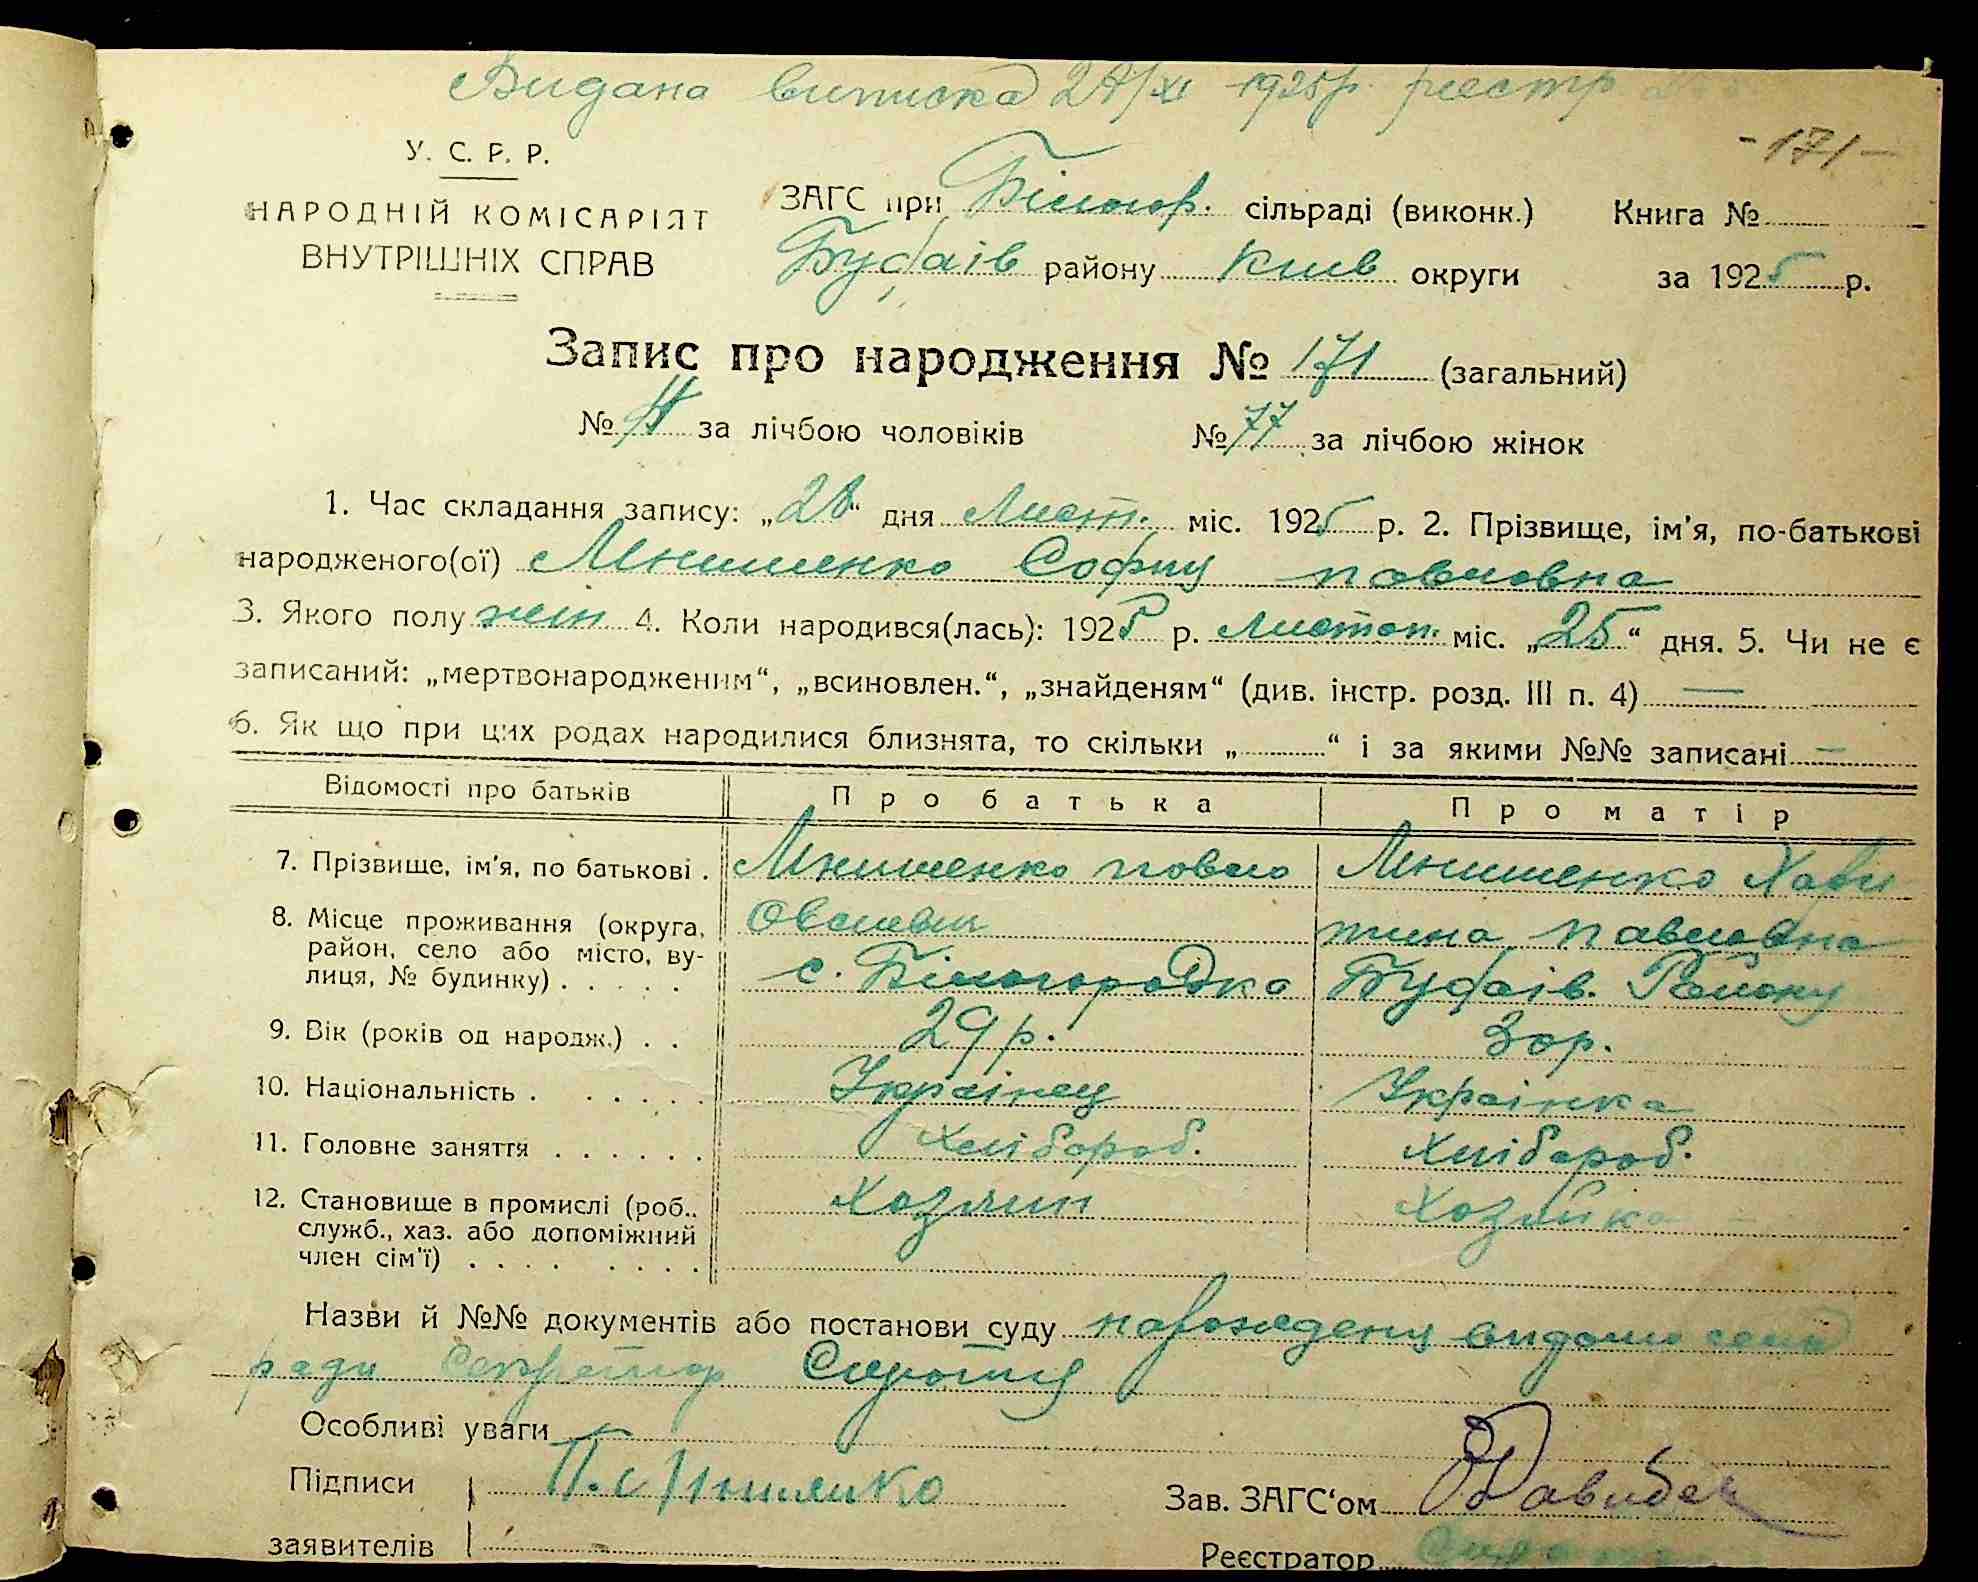 Видана виписка 1925 р. реєстр
- 171 -
У. С. Р. Р.
НАРОДНІЙ КОМІСАРІЯТ
ВНУТРІШНІХ СПРАВ
ЗАГС при Білогор. сільраді (виконк.) Книга №
Будаїв району Київ округи за 1925 р.
Запис про народження № 171 (загальний)
№ за лічбою чоловіків № 77 за лічбою жінок
1. Час складання запису: „28“ дня Лист. міс. 1925 р. 2. Прізвище, ім'я, по-батькові
народженого(ої) Мнишенко Софія павловна
3. Якого полу жін 4. Коли народився(лась): 1925 р. листоп. міс. „25“ дня. 5. Чи не є
записаний: „мертвонародженим“, „всиновлен.“, „знайденям“ (див. інстр. розд. III п. 4) —
6. Як що при цих родах народилися близнята, то скільки „ “ і за якими №№ записані —
Відомості про батьків Про батька Про матір
7. Прізвище, ім'я, по батькові . Мнишенко повло Мнишенко Хари
8. Місце проживання (округа, район, село або місто, ву-
лиця, № будинку) . . . . .
Овсиевич тина павловна
с. Білогородка Будаїв. Району
9. Вік (років од народж.) . . 29 р. 30 р.
10. Національність . . . . . . Українец Українка
11. Головне заняття . . . . . . Хлібороб. Хлібороб.
12. Становище в промислі (роб., Хозяин Хозяйка
служб., хаз. або допоміжний
член сім'ї) . . . . . . . .
Назви й №№ документів або постанови суду видано сель
ради Секретар
Особливі уваги
Підписи П. Мнишенко Зав. ЗАГС'ом
заявителів Реєстратор